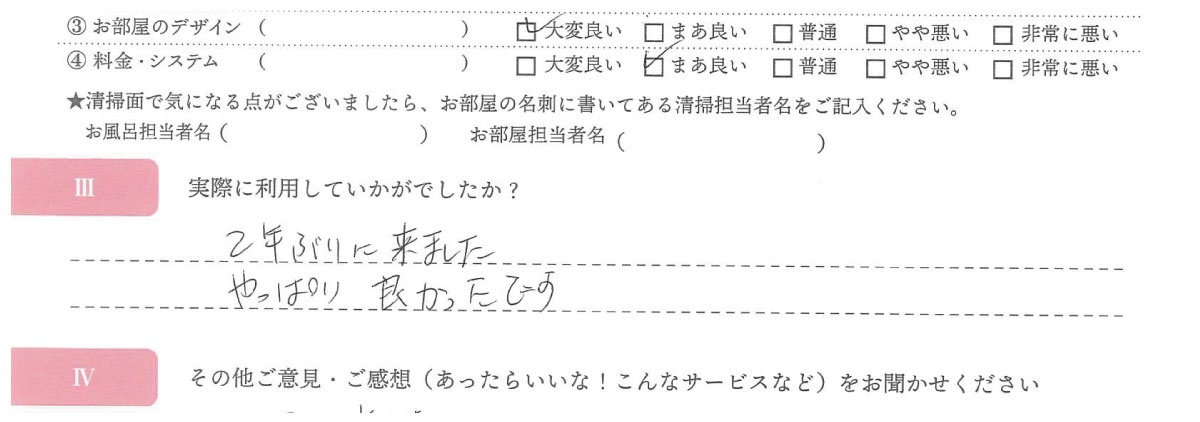 ③ お部屋のデザイン ( ) ☑大変良い □まあ良い □普通 □やや悪い □非常に悪い
④ 料金・システム ( ) □大変良い ☑まあ良い □普通 □やや悪い □非常に悪い
★清掃面で気になる点がございましたら、お部屋の名刺に書いてある清掃担当者名をご記入ください。
お風呂担当者名 ( ) お部屋担当者名 ( )
Ⅲ 実際に利用していかがでしたか？
2年ぶりに来ました
やっぱり 良かったです
Ⅳ その他ご意見・ご感想（あったらいいな！こんなサービスなど）をお聞かせください